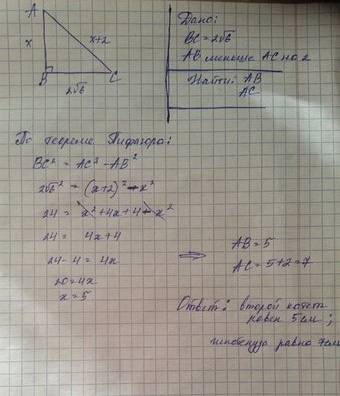 A
x
x+2
B
C
2√6
Дано:
BC = 2√6
AB меньше AC на 2
Найти: AB
AC
По теореме Пифагора:
BC² = AC² - AB²
2√6² = (x+2)² - x²
24 = x² + 4x + 4 - x²
24 = 4x + 4
24 - 4 = 4x
20 = 4x
x = 5
⇒
AB = 5
AC = 5+2 = 7
Ответ: второй катет
равен 5 см;
гипотенуза равна 7 см